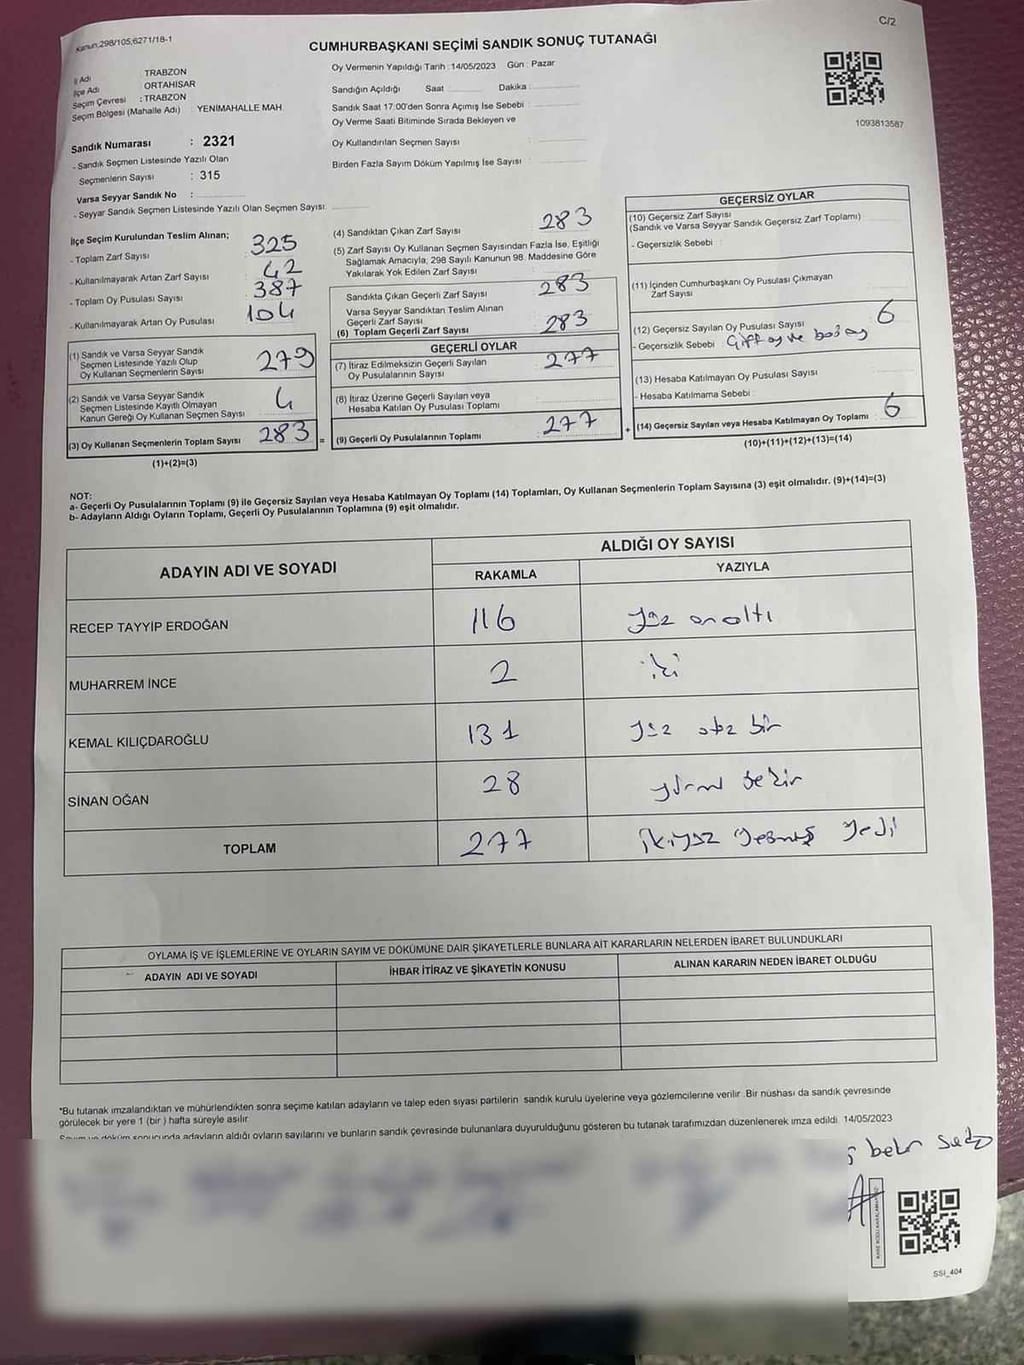 Kanun;298/105,6271/18-1
C/2
CUMHURBAŞKANI SEÇİMİ SANDIK SONUÇ TUTANAĞI
İl Adı TRABZON
İlçe Adı ORTAHİSAR
Seçim Çevresi : TRABZON
Seçim Bölgesi (Mahalle Adı) : YENİMAHALLE MAH
Oy Vermenin Yapıldığı Tarih : 14/05/2023 Gün : Pazar
Sandığın Açıldığı Saat Dakika
Sandık Saat 17:00'den Sonra Açımış İse Sebebi :
Oy Verme Saati Bitiminde Sırada Bekleyen ve
Oy Kullandırılan Seçmen Sayısı :
Birden Fazla Sayım Döküm Yapılmış İse Sayısı :
1093813587
Sandık Numarası : 2321
- Sandık Seçmen Listesinde Yazılı Olan
Seçmenlerin Sayısı : 315
Varsa Seyyar Sandık No :
- Seyyar Sandık Seçmen Listesinde Yazılı Olan Seçmen Sayısı:
İlçe Seçim Kurulundan Teslim Alınan;
- Toplam Zarf Sayısı : 325
- Kullanılmayarak Artan Zarf Sayısı : 42
- Toplam Oy Pusulası Sayısı : 387
- Kullanılmayarak Artan Oy Pusulası 104
(1) Sandık ve Varsa Seyyar Sandık
Seçmen Listesinde Yazılı Olup
Oy Kullanan Seçmenlerin Sayısı 279
(2) Sandık ve Varsa Seyyar Sandık
Seçmen Listesinde Kayıtlı Olmayan
Kanun Gereği Oy Kullanan Seçmen Sayısı 4
(3) Oy Kullanan Seçmenlerin Toplam Sayısı 283 =
(1)+(2)=(3)
(4) Sandıktan Çıkan Zarf Sayısı : 283
(5) Zarf Sayısı Oy Kullanan Seçmen Sayısından Fazla İse, Eşitliği
Sağlamak Amacıyla, 298 Sayılı Kanunun 98. Maddesine Göre
Yakılarak Yok Edilen Zarf Sayısı :
Sandıkta Çıkan Geçerli Zarf Sayısı : 283
Varsa Seyyar Sandıktan Teslim Alınan
Geçerli Zarf Sayısı
(6) Toplam Geçerli Zarf Sayısı : 283
GEÇERLİ OYLAR
(7) İtiraz Edilmeksizin Geçerli Sayılan
Oy Pusulalarının Sayısı 277
(8) İtiraz Üzerine Geçerli Sayılan veya
Hesaba Katılan Oy Pusulası Toplamı
(9) Geçerli Oy Pusulalarının Toplamı 277 +
GEÇERSİZ OYLAR
(10) Geçersiz Zarf Sayısı
(Sandık ve Varsa Seyyar Sandık Geçersiz Zarf Toplamı)
- Geçersizlik Sebebi :
(11) İçinden Cumhurbaşkanı Oy Pusulası Çıkmayan
Zarf Sayısı
(12) Geçersiz Sayılan Oy Pusulası Sayısı : 6
- Geçersizlik Sebebi : Çift oy ve boş oy
(13) Hesaba Katılmayan Oy Pusulası Sayısı :
- Hesaba Katılmama Sebebi :
(14) Geçersiz Sayılan veya Hesaba Katılmayan Oy Toplamı 6
(10)+(11)+(12)+(13)=(14)
NOT:
a- Geçerli Oy Pusulalarının Toplamı (9) ile Geçersiz Sayılan veya Hesaba Katılmayan Oy Toplamı (14) Toplamları, Oy Kullanan Seçmenlerin Toplam Sayısına (3) eşit olmalıdır. (9)+(14)=(3)
b- Adayların Aldığı Oyların Toplamı, Geçerli Oy Pusulalarının Toplamına (9) eşit olmalıdır.
ADAYIN ADI VE SOYADI ALDIĞI OY SAYISI
RAKAMLA YAZIYLA
RECEP TAYYİP ERDOĞAN 116 yüz onaltı
MUHARREM İNCE 2 iki
KEMAL KILIÇDAROĞLU 131 yüz otuz bir
SİNAN OĞAN 28 yirmi sekiz
TOPLAM 277 ikiyüz yetmiş yedi
OYLAMA İŞ VE İŞLEMLERİNE VE OYLARIN SAYIM VE DÖKÜMÜNE DAİR ŞİKAYETLERLE BUNLARA AİT KARARLARIN NELERDEN İBARET BULUNDUKLARI
ADAYIN ADI VE SOYADI İHBAR İTİRAZ VE ŞİKAYETİN KONUSU ALINAN KARARIN NEDEN İBARET OLDUĞU
*Bu tutanak imzalandıktan ve mühürlendikten sonra seçime katılan adayların ve talep eden siyasi partilerin sandık kurulu üyelerine veya gözlemcilerine verilir. Bir nüshası da sandık çevresinde
görülecek bir yere 1 (bir) hafta süreyle asılır.
Sayım ve döküm sonucunda adayların aldığı oyların sayılarını ve bunların sandık çevresinde bulunanlara duyurulduğunu gösteren bu tutanak tarafımızdan düzenlenerek imza edildi. 14/05/2023
SSI_404